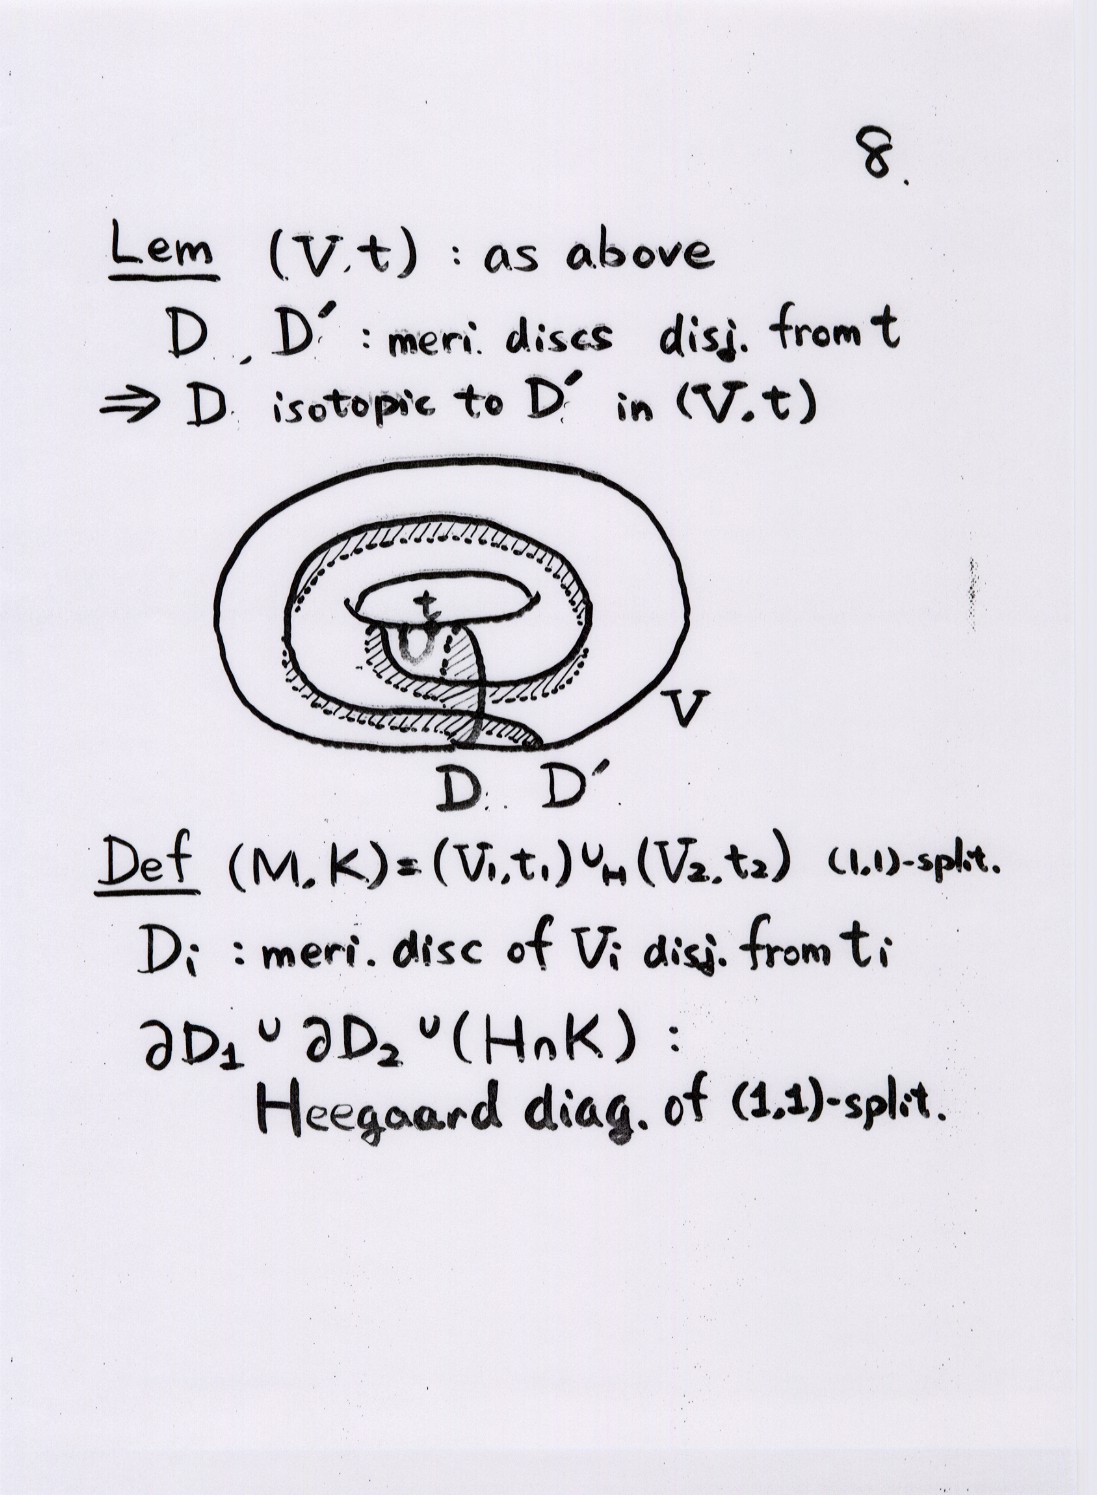 8.
Lem (V,t) : as above
D, D′ : meri. discs disj. from t
⇒ D isotopic to D′ in (V,t)
t
V
D D′
Def (M,K)=(V₁,t₁)∪_H(V₂,t₂) (1,1)-split.
Dᵢ : meri. disc of Vᵢ disj. from tᵢ
∂D₁∪∂D₂∪(H∩K) :
Heegaard diag. of (1,1)-split.